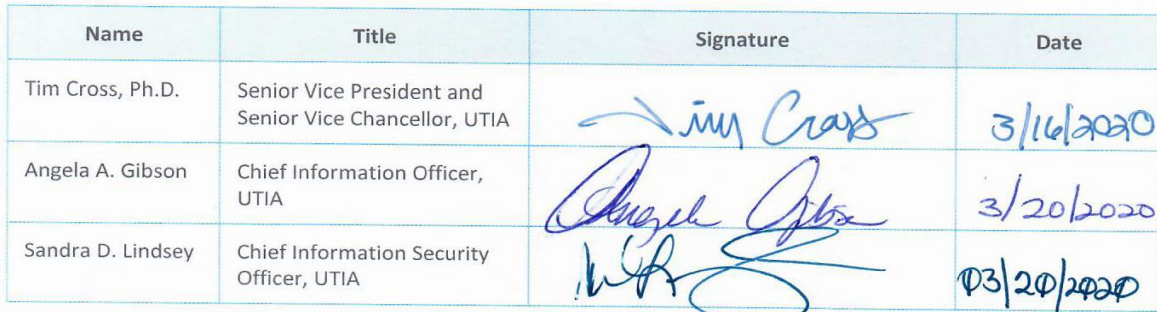 Name Title Signature Date
Tim Cross, Ph.D. Senior Vice President and
Senior Vice Chancellor, UTIA Tim Cross 3/16/2020
Angela A. Gibson Chief Information Officer,
UTIA Angela Gibson 3/20/2020
Sandra D. Lindsey Chief Information Security
Officer, UTIA 03/20/2020